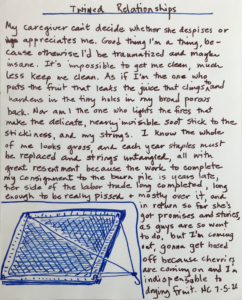 Twined Relationships
My caregiver can't decide whether she despises or
appreciates me. Good thing I'm a thing, be-
cause otherwise I'd be traumatized and maybe
insane. It's impossible to get me clean, much
less keep me clean. As if I'm the one who
puts the fruit that leaks the juice that clings, and
hardens in the tiny holes in my broad porous
back. Nor am I the one who lights the fires that
make the delicate, nearly invisible soot stick to the
stickiness, and my strings. I know the whole
of me looks gross, and each year staples must
be replaced and strings untangled, all with
great resentment because the work to complete
my consignment to the burn pile is years late,
her side of the labor trade long completed, long
enough to be really pissed & mostly over it, and
in return so far she's
got promises and stories,
as guys are so wont
to do, but I'm coming
out, gonna get hosed
off because apricots
are coming on and I'm
indispensable to
drying fruit.